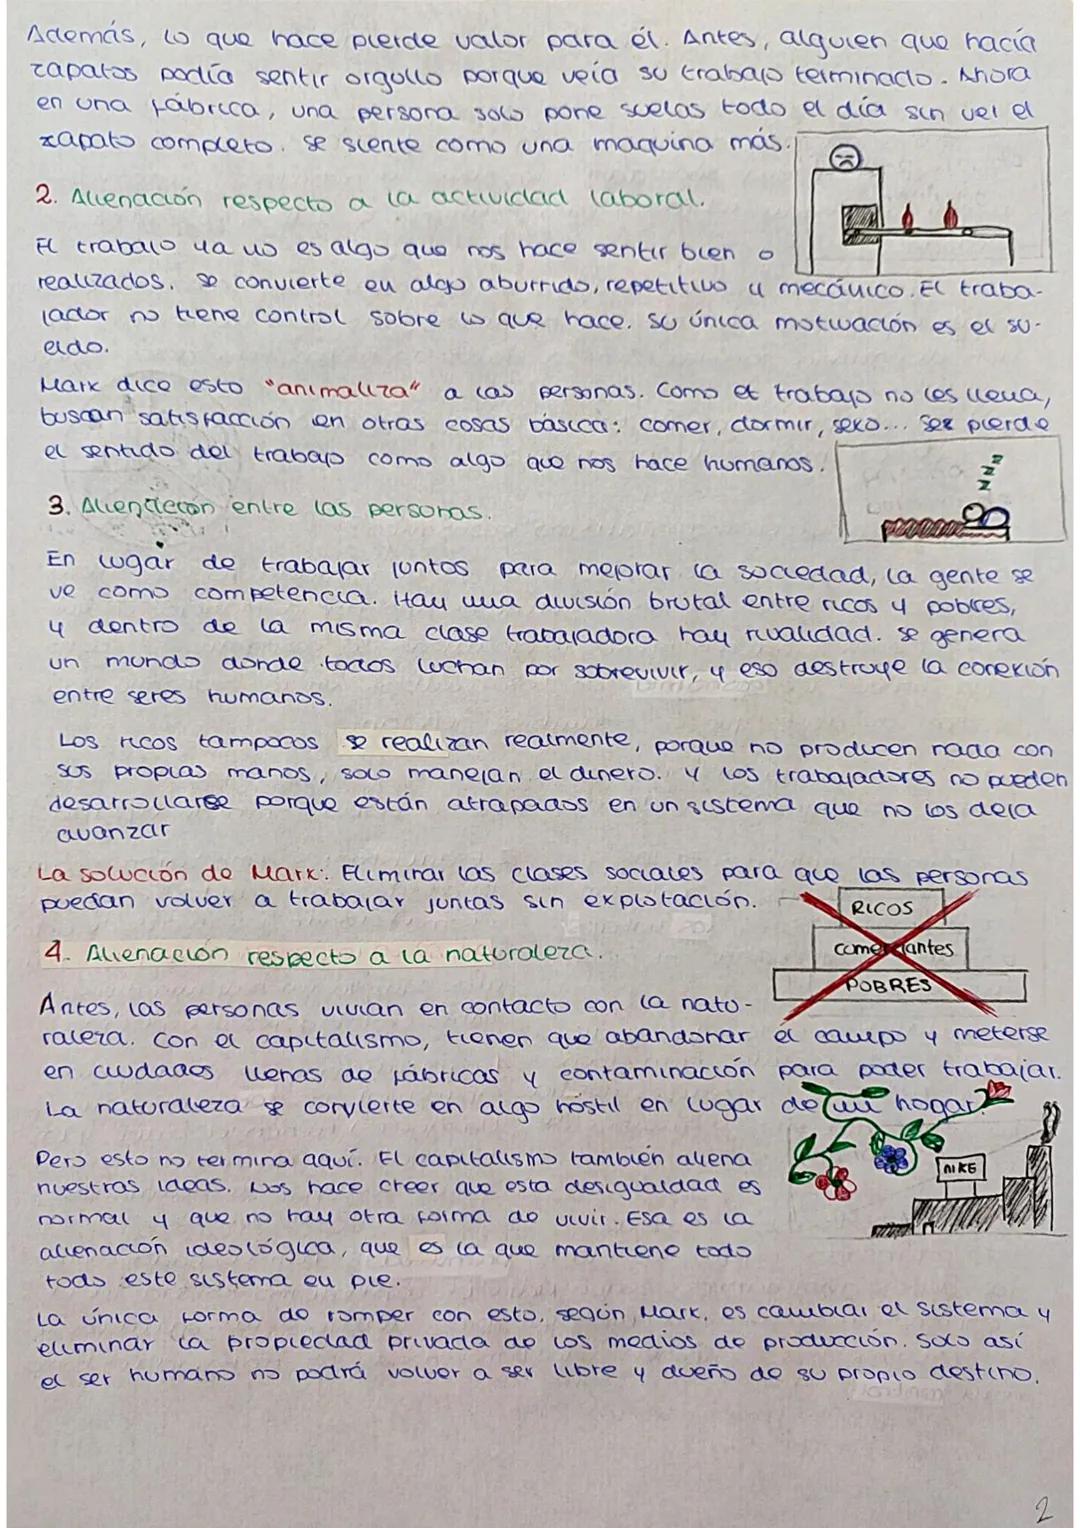 Además, lo que hace pierde valor para él. Antes, alguien que hacía
zapatos podía sentir orgullo porque veía su trabajo terminado. Ahora
en una fábrica, una persona solo pone suelas todo el día sin ver el
zapato completo. Se siente como una maquina más.
2. Alienación respecto a la actividad laboral.
El trabajo ya no es algo que nos hace sentir bien o
realizados. Se convierte en algo aburrido, repetitivo y mecánico. El traba-
jador no tiene control sobre lo que hace. Su única motivación es el su-
eldo.
Marx dice esto "animaliza" a las personas. Como el trabajo no les llena,
buscan satisfacción en otras cosas básica: comer, dormir, sexo... Se pierde
el sentido del trabajo como algo que nos hace humanos.
z z z z
3. Alienación entre las personas.
En lugar de trabajar juntos para mejorar la sociedad, la gente se
ve como competencia. Hay una división brutal entre ricos y pobres,
y dentro de la misma clase trabajadora hay rivalidad. Se genera
un mundo donde todos luchan por sobrevivir, y eso destruye la conexión
entre seres humanos.
Los ricos tampocos se realizan realmente, porque no producen nada con
sus propias manos, solo manejan el dinero. Y los trabajadores no pueden
desarrollarse porque están atrapados en un sistema que no los deja
avanzar
La solución de Marx: Eliminar las clases sociales para que las personas
puedan volver a trabajar juntas sin explotación.
RICOS
comerciantes
POBRES
4. Alienación respecto a la naturaleza.
Antes, las personas vivían en contacto con la natu-
raleza. Con el capitalismo, tienen que abandonar el campo y meterse
en ciudades llenas de fábricas y contaminación para poder trabajar.
La naturaleza se convierte en algo hostil en lugar de un hogar.
Pero esto no termina aquí. El capitalismo también aliena
nuestras ideas. Nos hace creer que esta desigualdad es
normal y que no hay otra forma de vivir. Esa es la
alienación ideológica, que es la que mantiene todo
todo este sistema en pie.
NIKE
La única forma de romper con esto, según Marx, es cambiar el sistema y
eliminar la propiedad privada de los medios de producción. Solo así
el ser humano no podrá volver a ser libre y dueño de su propio destino.
2